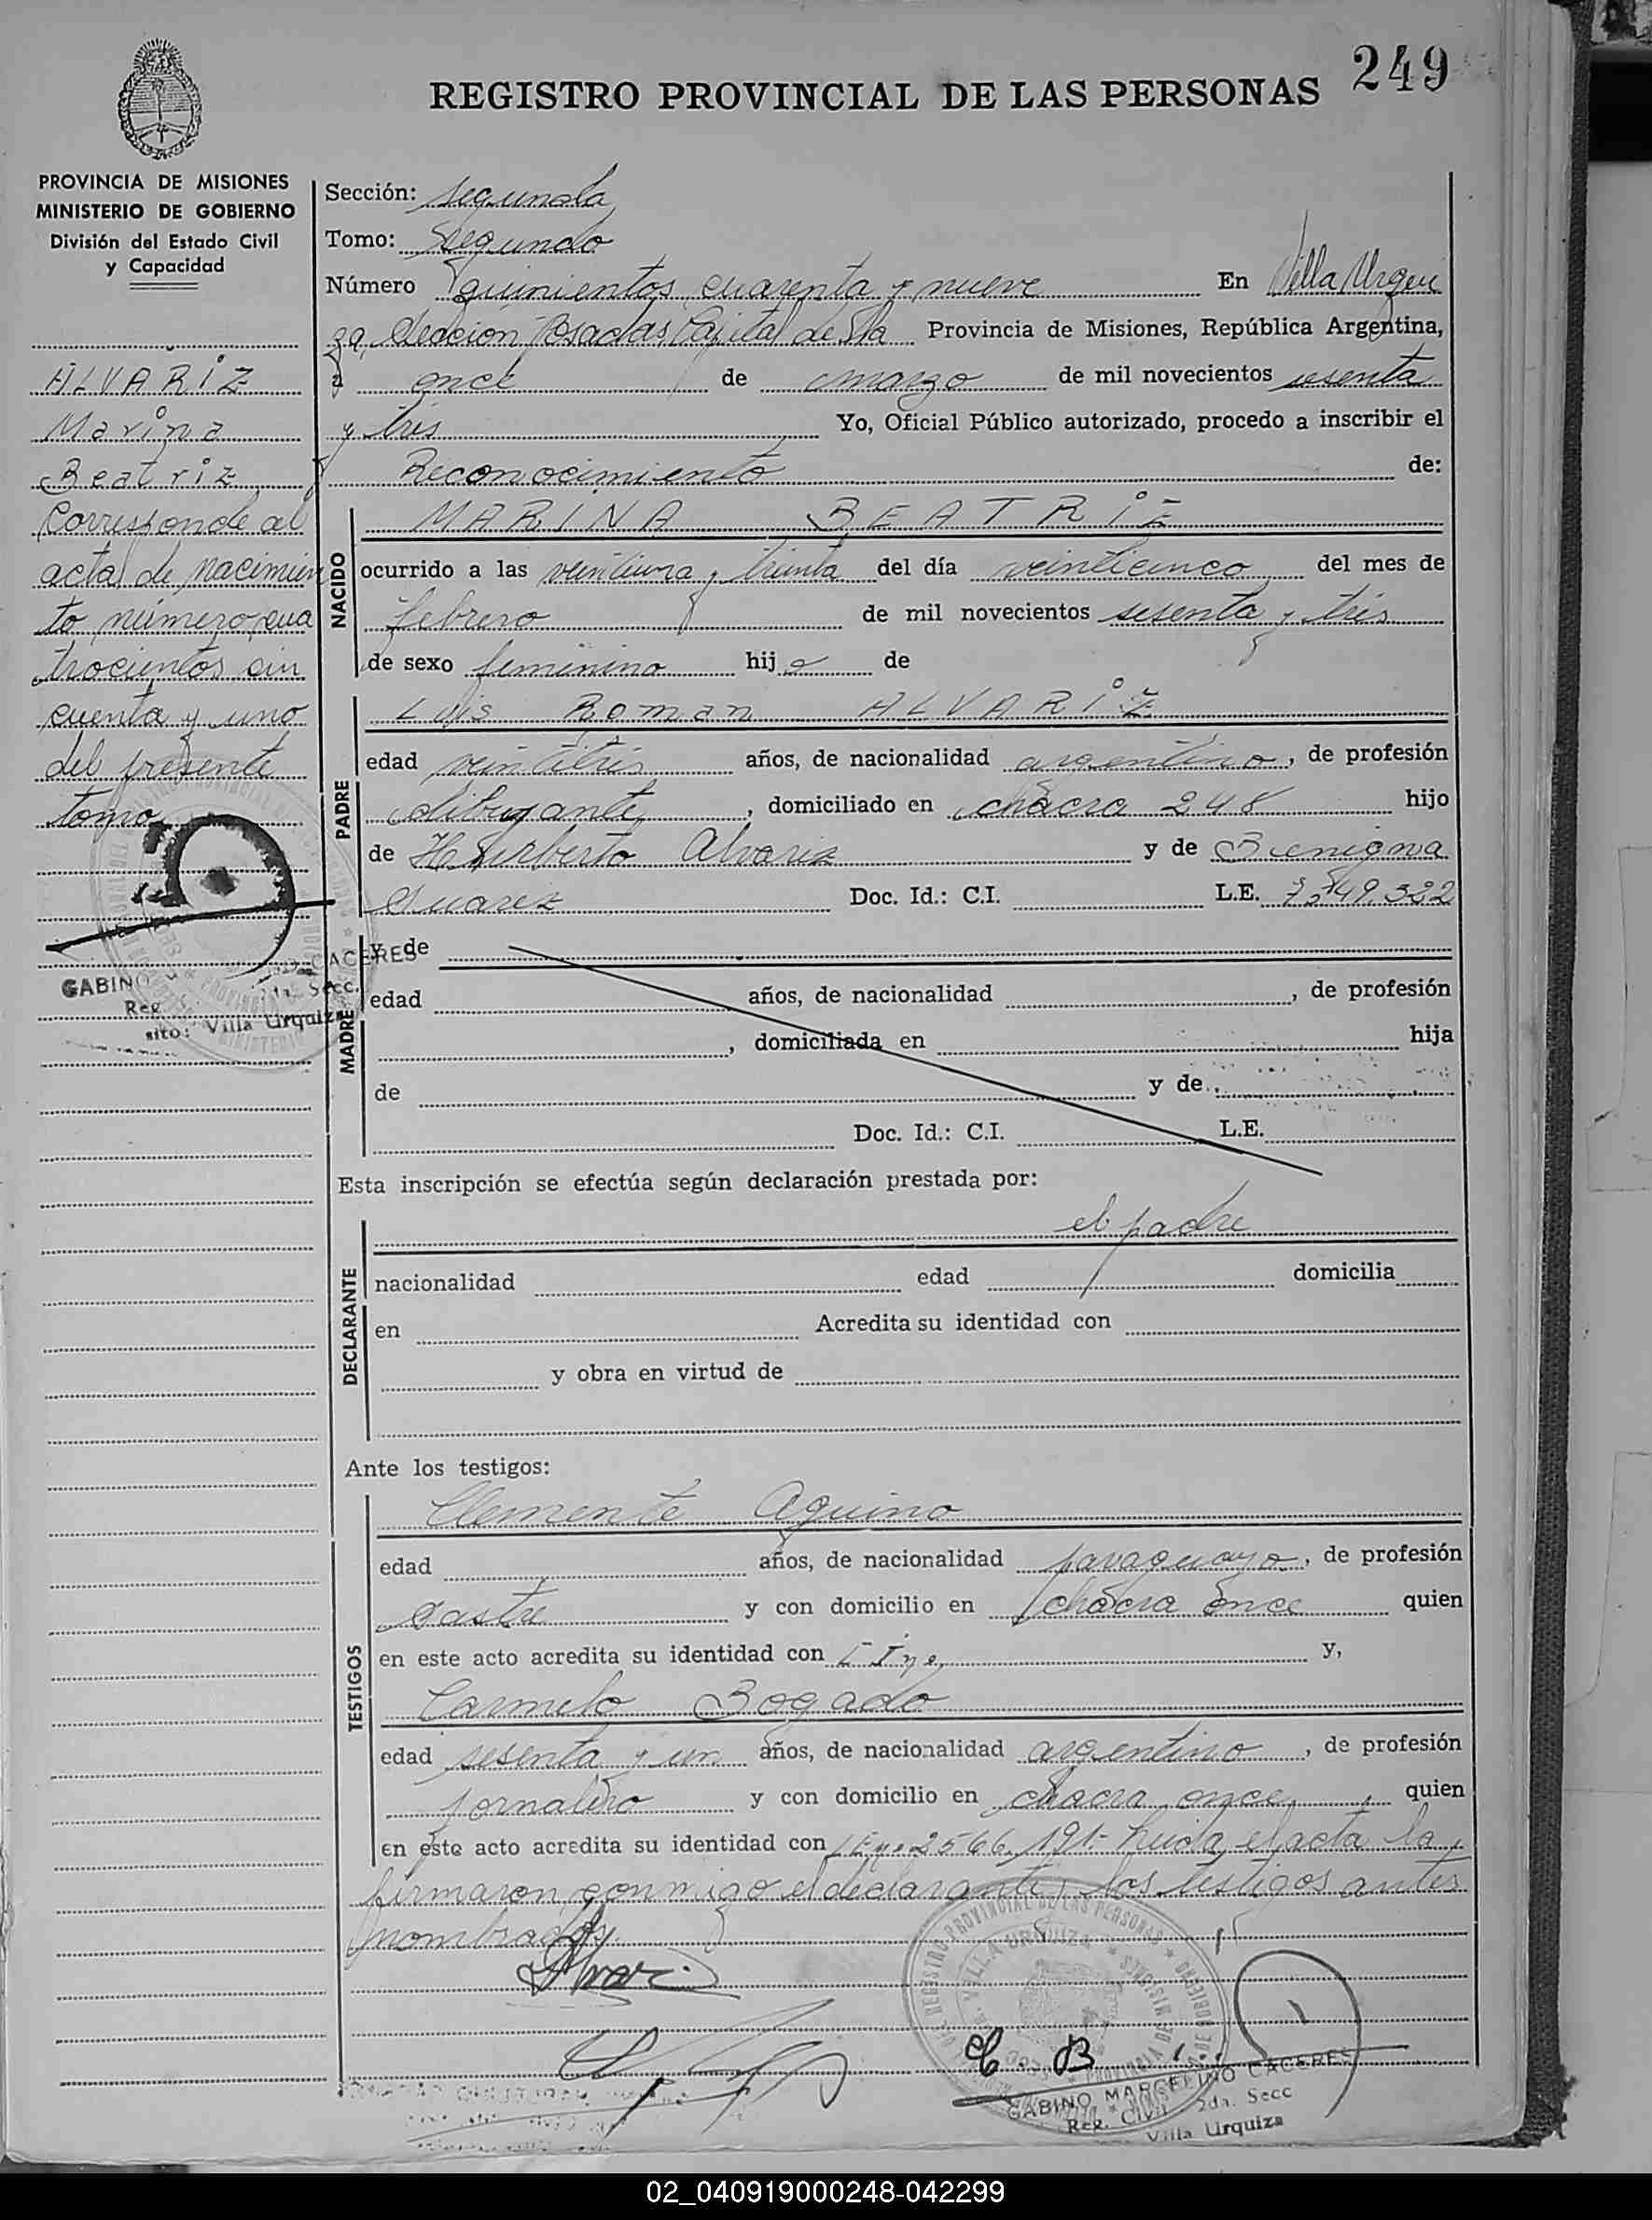 249
REGISTRO PROVINCIAL DE LAS PERSONAS
PROVINCIA DE MISIONES
MINISTERIO DE GOBIERNO
División del Estado Civil
y Capacidad
ALVARIZ
Marina
Beatriz
Corresponde al
acta de nacimien
to número cua
trocientos cin
cuenta y uno
del presente
tomo
GABINO CACERES
Villa Urquiza
Sección: segunda
Tomo: Segundo
Número quinientos cuarenta y nueve En Villa Urqui
za, Sección Posadas Capital de la Provincia de Misiones, República Argentina,
a once de marzo de mil novecientos sesenta
y tres Yo, Oficial Público autorizado, procedo a inscribir el
Reconocimiento de:
NACIDO
MARINA BEATRIZ
ocurrido a las veintiuna y treinta del día veinticinco del mes de
febrero de mil novecientos sesenta y tres
de sexo feminino hija de
PADRE
Luis Roman ALVARIZ
edad veintitres años, de nacionalidad argentino, de profesión
dibujante, domiciliado en chacra 248 hijo
de Heriberto Alvariz y de Benigna
Suarez Doc. Id.: C.I. L.E. 7.549.322
MADRE
y de
edad años, de nacionalidad , de profesión
, domiciliada en hija
de y de
Doc. Id.: C.I. L.E.
Esta inscripción se efectúa según declaración prestada por:
DECLARANTE
el padre
nacionalidad edad domicilia
en Acredita su identidad con
y obra en virtud de
Ante los testigos:
TESTIGOS
Clemente Aquino
edad años, de nacionalidad paraguayo, de profesión
sastre y con domicilio en chacra once quien
en este acto acredita su identidad con y,
Carmelo Bogado
edad sesenta y un años, de nacionalidad argentino, de profesión
jornalero y con domicilio en chacra once, quien
en este acto acredita su identidad con LE nº 2566.191- Leida el acta la
firmaron conmigo el declarante y los testigos antes
nombrados.
C. B
GABINO MARCELINO CACERES
Reg. Civil 2da. Secc
Villa Urquiza
02_040919000248-042299